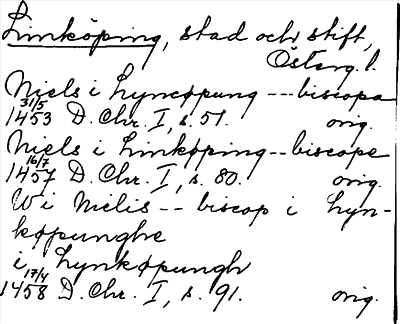 Linköping, stad och stift,
Österg. l.
Niels i Lyncøpung -- biscopa
31/5 1453 D. Chr. I, s. 51. orig.
Niels i Linkøping -- biscope
16/7 1457 D. Chr. I, s. 80. orig.
Wi Nielis -- biscop i Lyn-
køpunghe
i Lynkøpungh
17/4 1458 D. Chr. I, s. 91. orig.